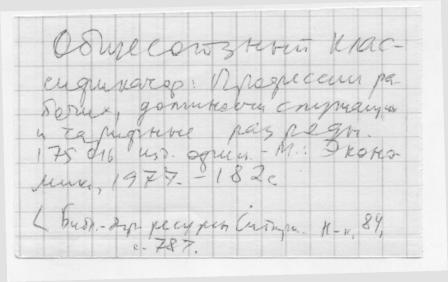 Общесоюзный клас-
сификатор: Профессии ра-
бочих, должности служащих
и тарифные разряды.
175 016 изд. офиц. - М.: Эконо-
мика, 1977. - 182с
Библ. ресурсы Сибири. 84,
с. 787.